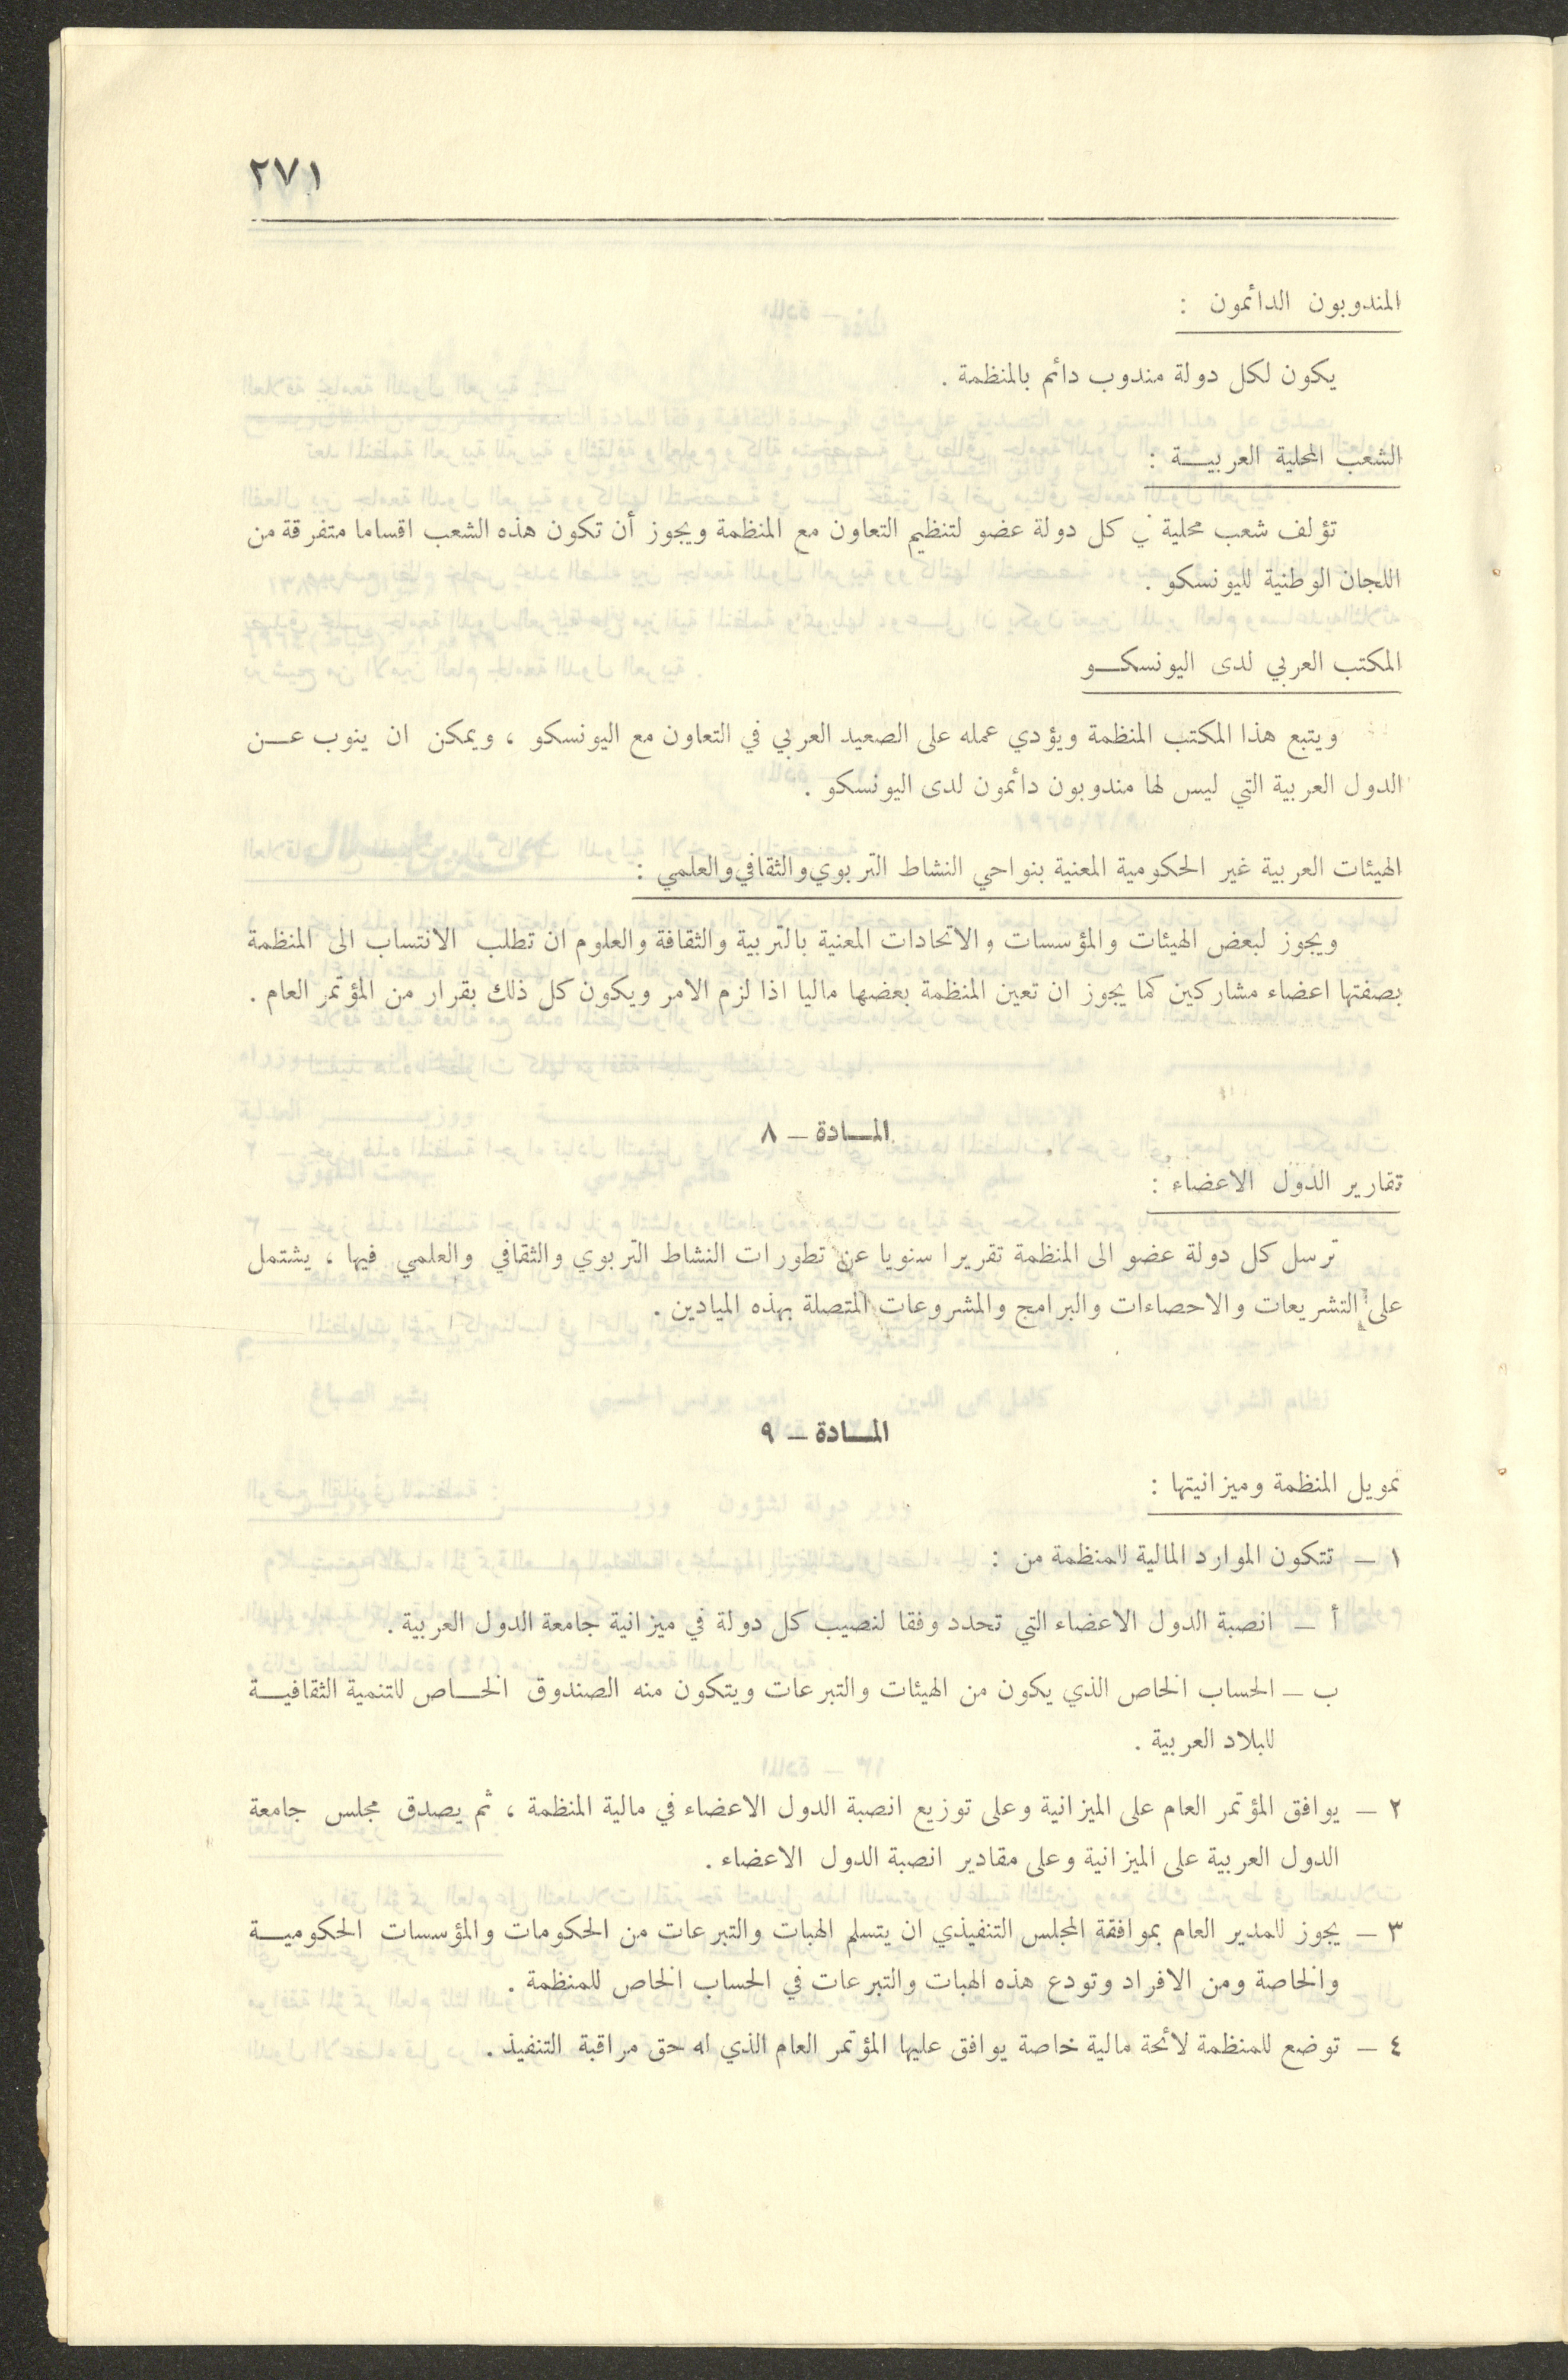 ٢٧١
المندوبون الدائمون :
يكون لكل دولة مندوب دائم بالمنظمة .
الشعب المحلية العربيـــة :
تؤلف شعب محلية في كل دولة عضو لتنظيم التعاون مع المنظمة ويجوز أن تكون هذه الشعب اقساما متفرقة من
اللجان الوطنية لليونسكو .
المكتب العربي لدى اليونسكـــو
ويتبع هذا المكتب المنظمة ويؤدي عمله على الصعيد العربي في التعاون مع اليونسكو ، ويمكن ان ينوب عـــن
الدول العربية التي ليس لها مندوبون دائمون لدى اليونسكو .
الهيئات العربية غير الحكومية المعنية بنواحي النشاط التربوي والثقافي والعلمي :
ويجوز لبعض الهيئات والمؤسسات والاتحادات المعنية بالتربية والثقافة والعلوم ان تطلب الانتساب الى المنظمة
بصفتها اعضاء مشاركين كما يجوز ان تعين المنظمة بعضها ماليا اذا لزم الامر ويكون كل ذلك بقرار من المؤتمر العام .
المــادة ــ ٨
تقارير الدول الاعضاء :
ترسل كل دولة عضو الى المنظمة تقريرا سنويا عن تطورات النشاط التربوي والثقافي والعلمي فيها ، يشتمل
على التشريعات والاحصاءات والبرامج والمشروعات المتصلة بهذه الميادين .
المــادة ــ ٩
تمويل المنظمة وميزانيتها :
١ ــ تتكون الموارد المالية للمنظمة من :
أ ــ انصبة الدول الاعضاء التي تحدد وفقا لنصيب كل دولة في ميزانية جامعة الدول العربية .
ب ــ الحساب الخاص الذي يكون من الهيئات والتبرعات ويتكون منه الصندوق الخـــاص للتنمية الثقافيـــة
للبلاد العربية .
٢ ــ يوافق المؤتمر العام على الميزانية وعلى توزيع انصبة الدول الاعضاء في مالية المنظمة ، ثم يصدق مجلس جامعة
الدول العربية على الميزانية وعلى مقادير انصبة الدول الاعضاء .
٣ ــ يجوز للمدير العام بموافقة المجلس التنفيذي ان يتسلم الهبات والتبرعات من الحكومات والمؤسسات الحكوميـــة
والخاصة ومن الافراد وتودع هذه الهبات والتبرعات في الحساب الخاص للمنظمة .
٤ ــ توضع للمنظمة لائحة مالية خاصة يوافق عليها المؤتمر العام الذي له حق مراقبة التنفيذ .